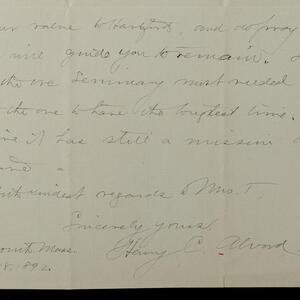 value to Hartford, and do pray
will guide you to remain.
the one Seminary most needed
the one to have the longest time.
it) has still a mission
with kindest regards to Mrs. T.
Sincerely yours,
Henry C. Alvord
Mass.
1892.